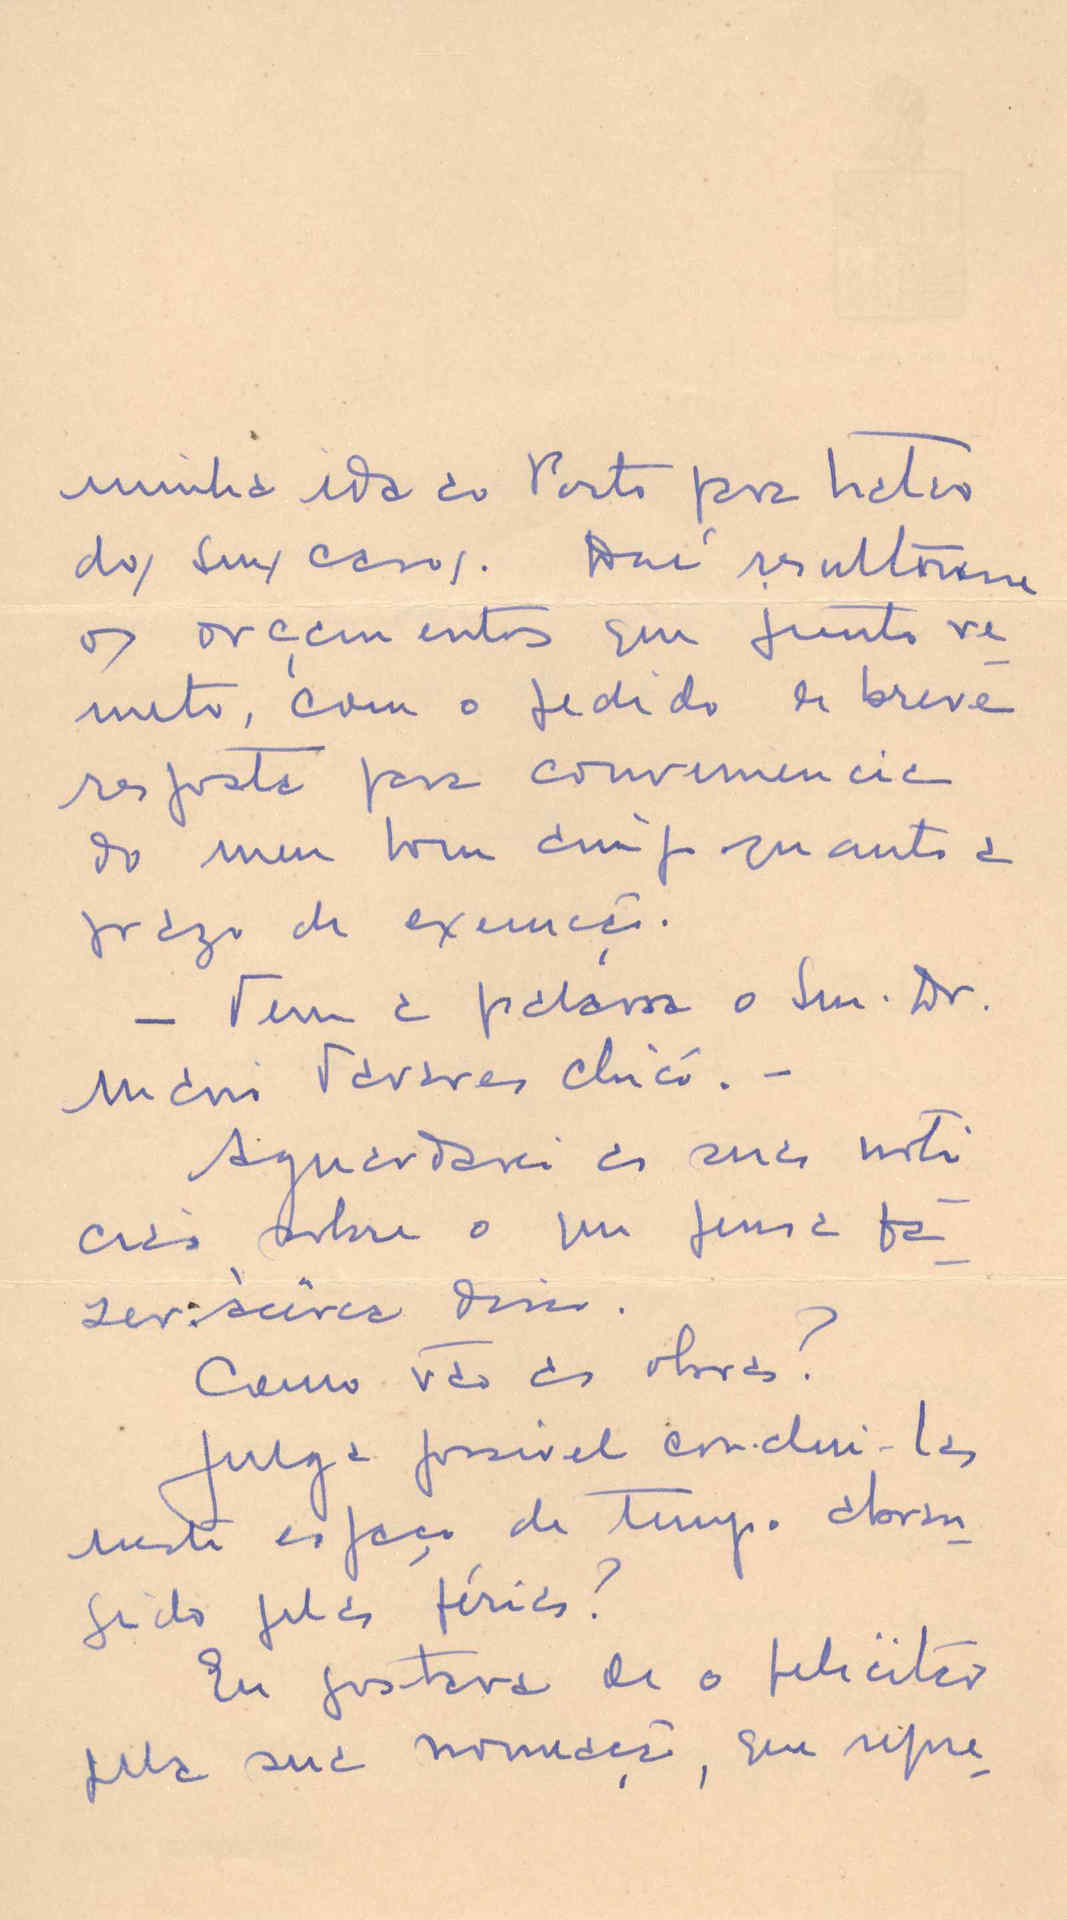 minha ida ao Porto para tratar
dos seus casos. Daí resultaram
os orçamentos que junto re-
meto, com o pedido de breve
resposta para conveniencia
do meu bom amigo quanto a
prazo de execução.
— Tem a palavra o Snr. Dr.
Mario Tavares Chicó. —
Aguardarei as suas noti
cias sobre o que pensa fa-
zer àcêrca disso.
Como vão as obras?
Julga possivel conclui-las
neste espaço de tempo abran-
gido pelas férias?
Eu gostava de o felicitar
pela sua nomeação, que repre-